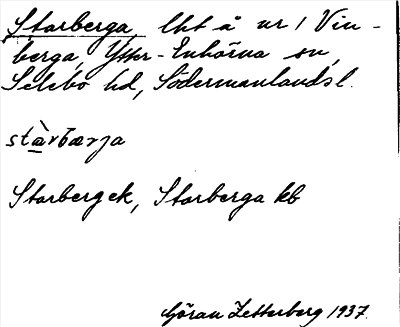 Starberga, lht å nr 1 Vin-
berga, Ytter-Enhörna sn,
Selebo hd, Södermanlandsl.
stàrbærja
Starbergek, Starberga kb
Göran Zetterberg 1937.